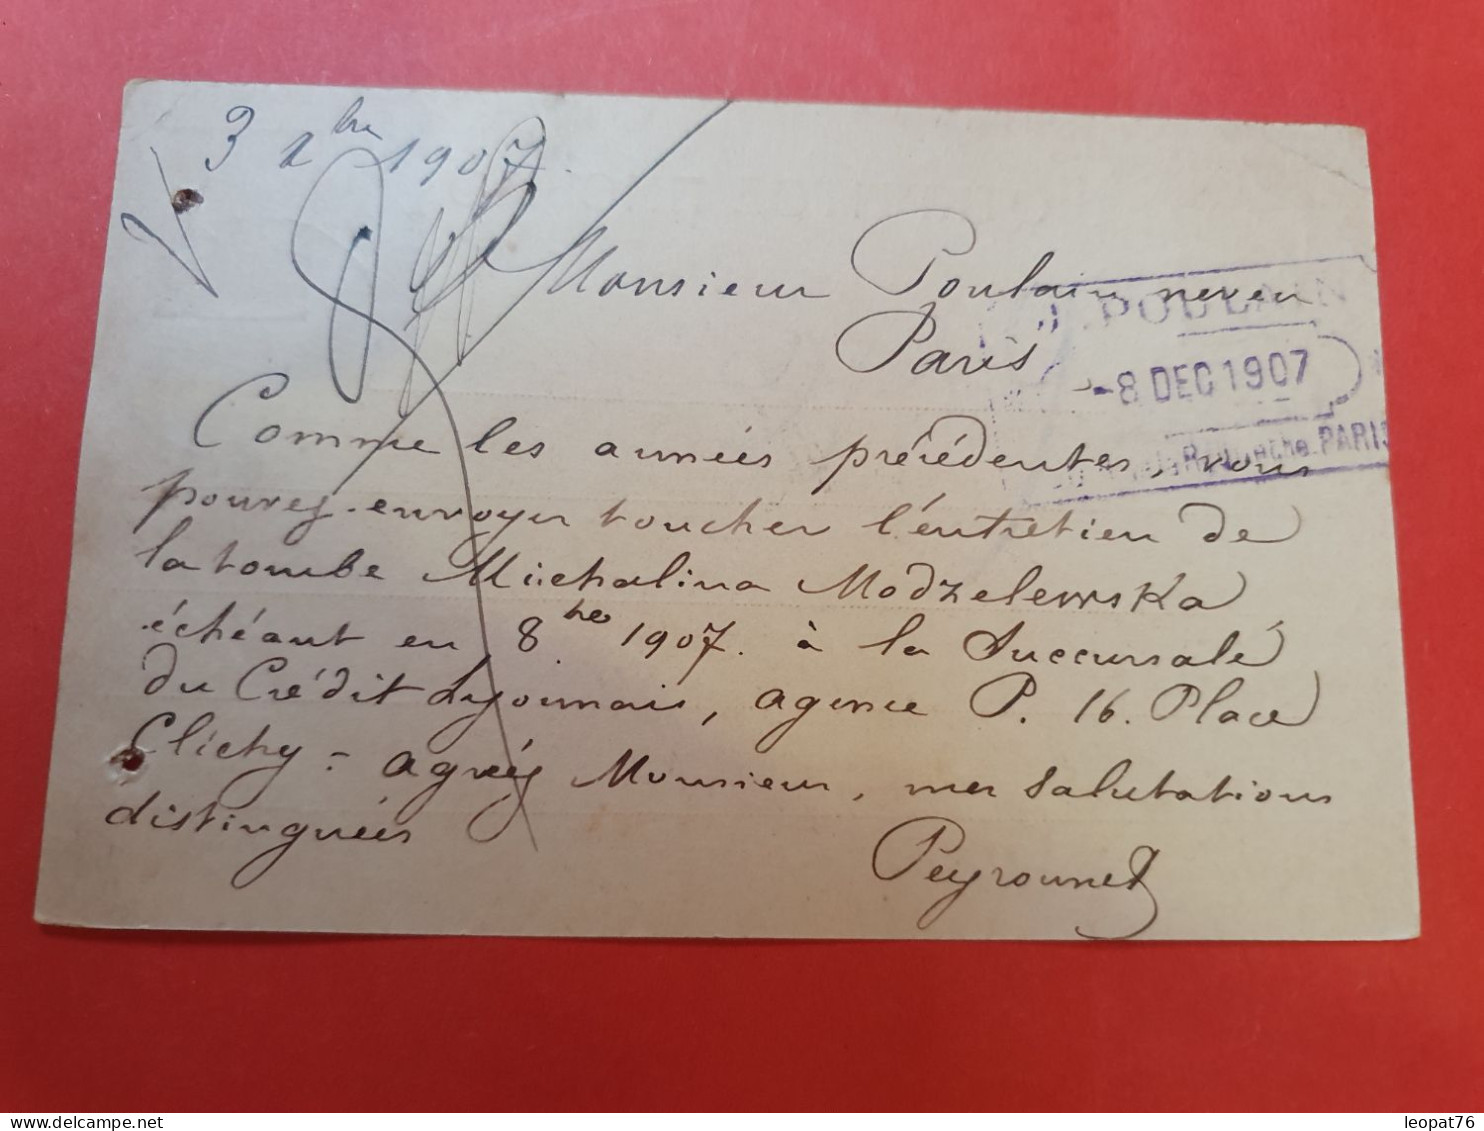 3 1bre 1907
Monsieur Poulain neveu
Paris
POULAIN
-8 DEC 1907
PARIS
Comme les années précédentes, vous
pouvez envoyer toucher l'entretien de
la tombe Michalina Modzelewska
échéant en 8bre 1907. à la Succursale
du Crédit Lyonnais, agence P. 16. Place
Clichy = agréez Monsieur, mes salutations
distinguées
Peyrounet
leopat76
www.delcampe.net